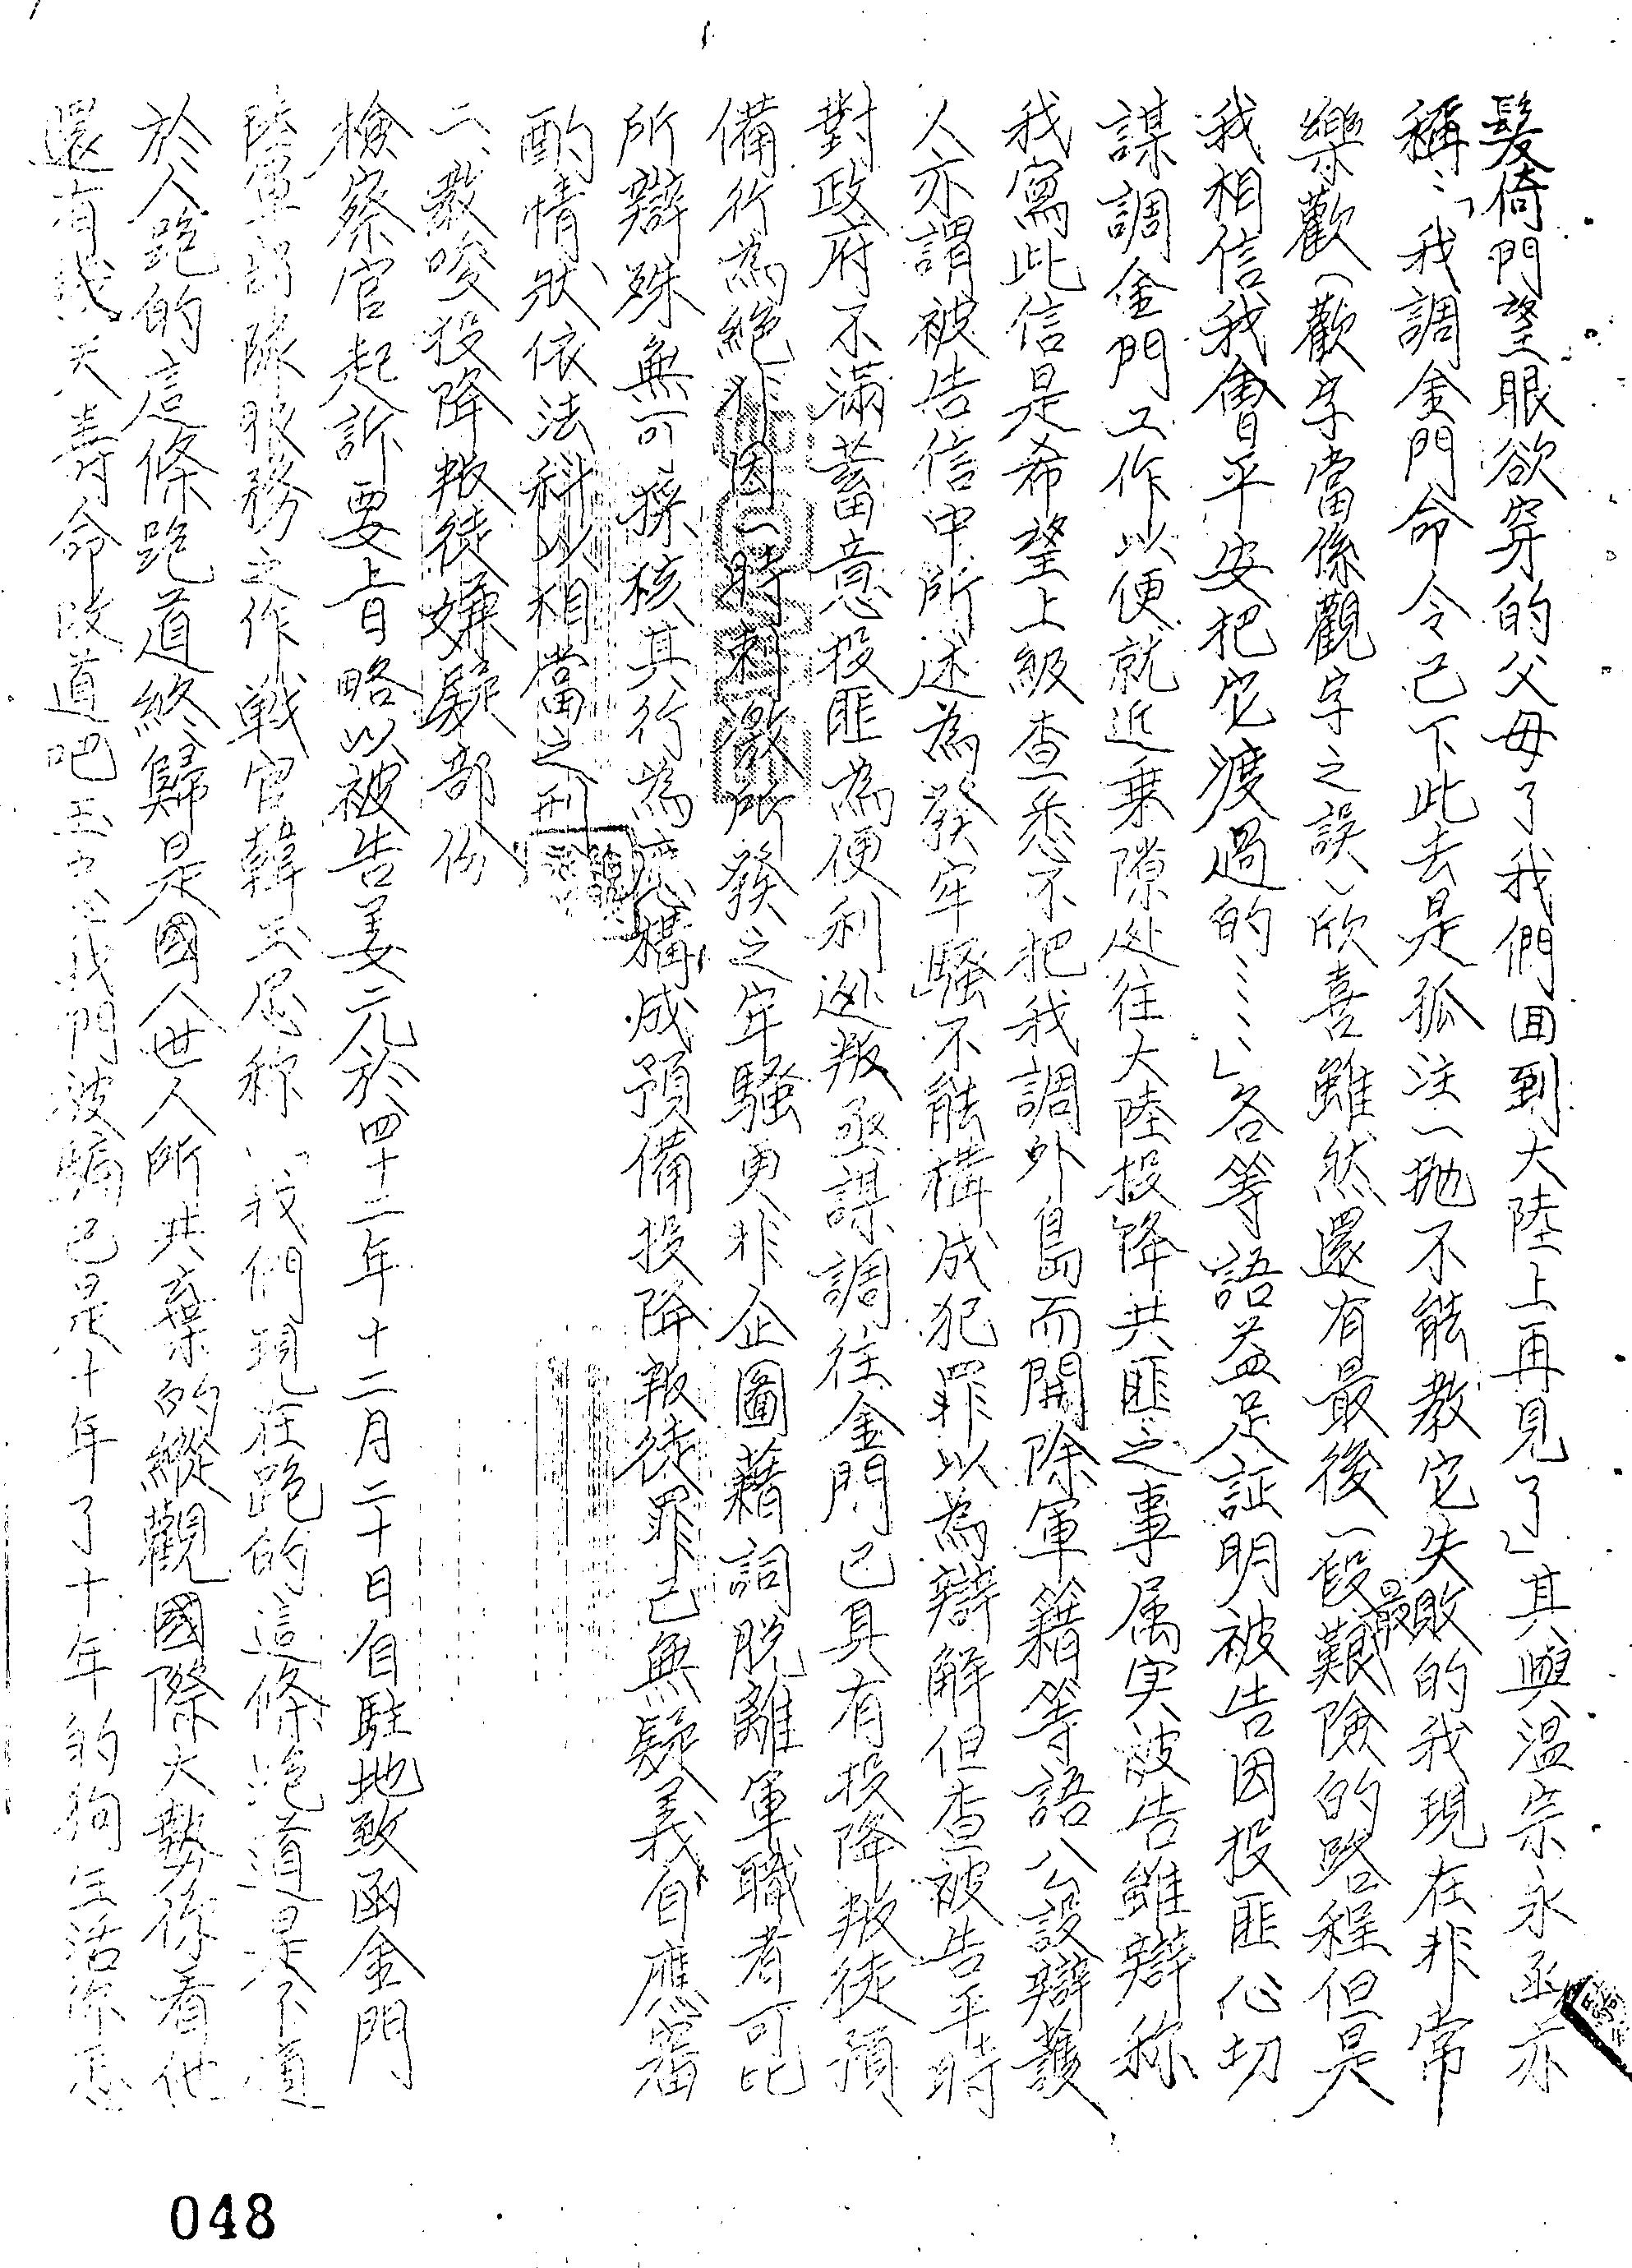 髮倚門望眼欲穿的父母了我們囬到大陸上再見了」其與溫宗永函亦
稱：「我調金門命令已下此去是孤注一拋不能教它失敗的我現在非常
樂歡（歡字當係觀字之誤）欣喜雖然還有最後一段最艱險的路程但是
我相信我會平安把它渡過的⋯⋯」各等語益足証明被告因投匪心切
謀調金門工作以便就近乘隙逃往大陸投降共匪之事属实被告雖辯称
我寫此信是希望上級查悉不把我調外島而開除軍籍等語公設辯護
人亦謂被告信中所述為發牢騷不能構成犯罪以為辯解但查被告平時
對政府不滿蓄意投匪為便利逃叛亟謀調往金門已具有投降叛徒預
備行為絕非因一時刺激所發之牢騷更非企圖藉詞脫離軍職者可比
所辯殊無可採核其行為應構成預備投降叛徒罪已無疑義自應審
酌情狀依法科以相當之刑
二、教唆投降叛徒嫌疑部份
檢察官起訴要旨略以被告姜元於四十二年十二月二十日自駐地致函金門
陸軍部隊服務之作戰官韓玉 称：「我們現在跑的這條跑道是不道
於人跑的這條跑道終歸是國人世人所共棄的縱觀國際大勢你看他
還有幾天壽命改道吧玉 我們被騙已是十年了十年的狗生活你
048